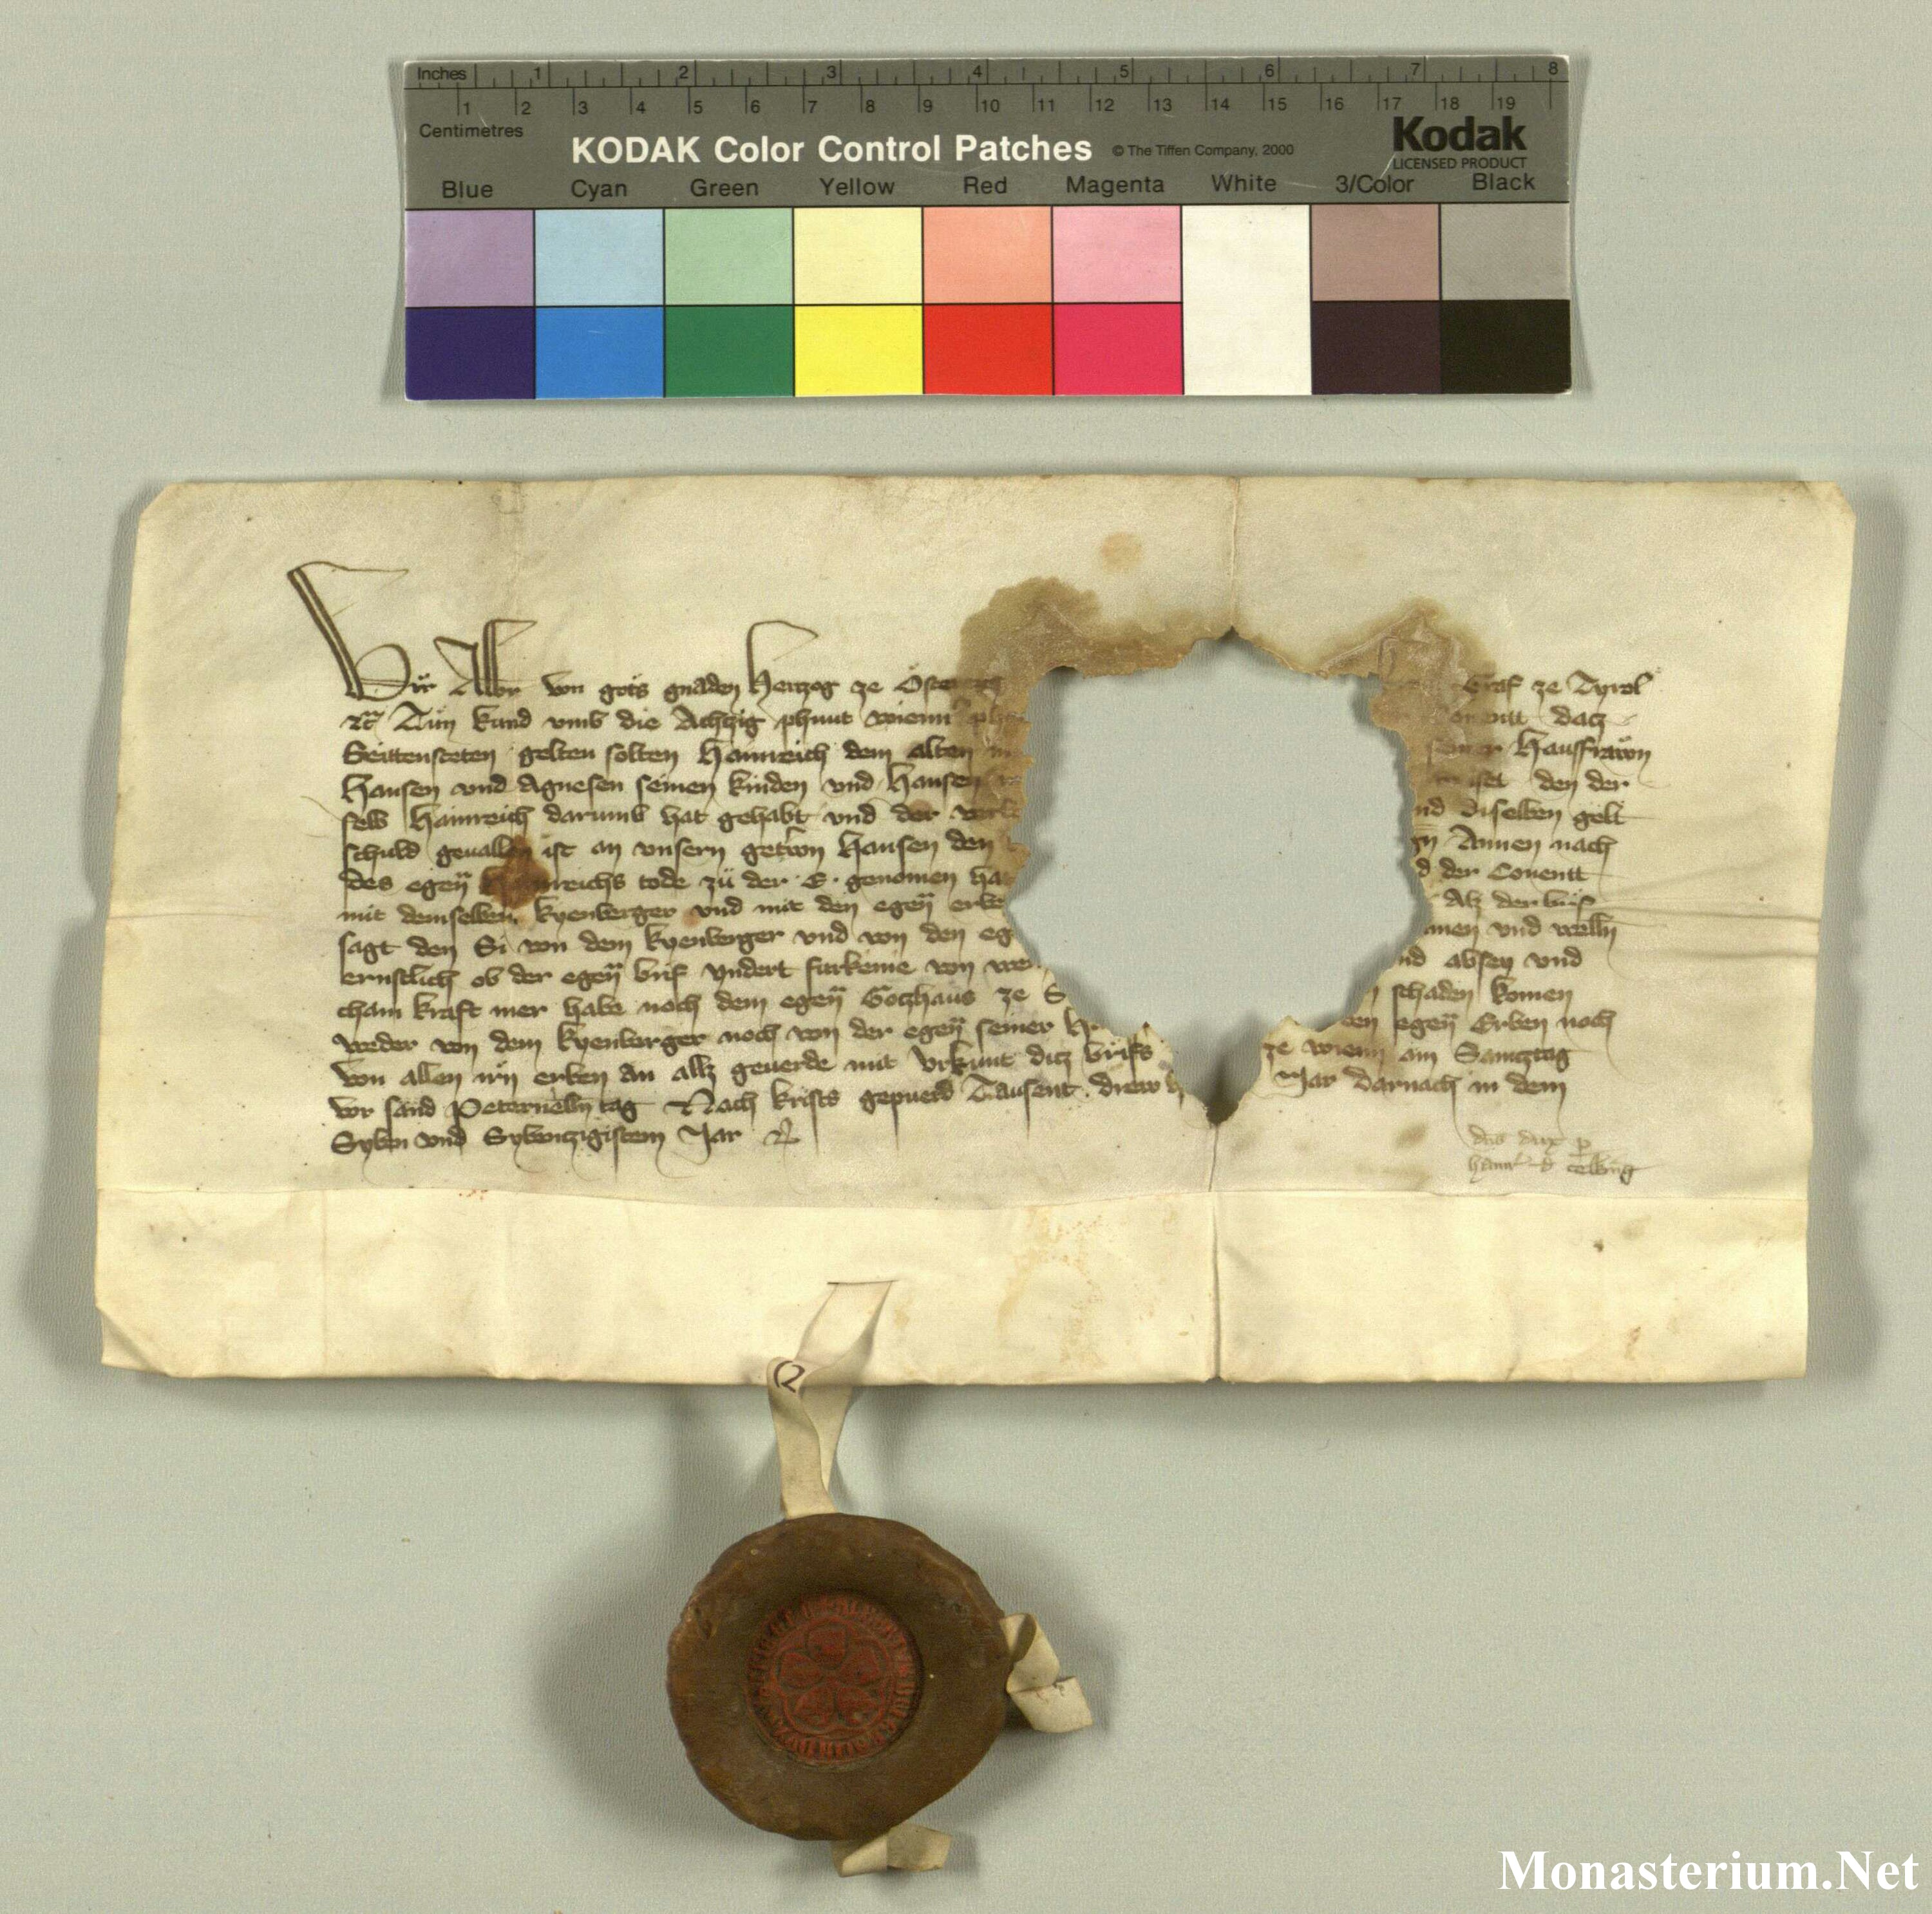 Inches 1 2 3 4 5 6 7 8
1 2 3 4 5 6 7 8 9 10 11 12 13 14 15 16 17 18 19
Centimetres
KODAK Color Control Patches © The Tiffen Company, 2000 Kodak
LICENSED PRODUCT
Blue Cyan Green Yellow Red Magenta White 3/Color Black
Wir Albr von gots gnaden Hertzog ze Österreich Graf ze Tyrol
etc Tün kund vmb die Achtzig phunt wienn phen Conuentt datz
Seittensteten gelten solten Hainreich dem alten seiner Hausfrawn
Hansen vnd Agnesen seinen kinden vnd Hansen den der
selb Hainreich darumb hat gehabt vnd der nd diselben gelt
schuld geuallen ist an vnsern getrwn Hansen den Annen nach
des egen Hainreichs tode zü der E genomen hat d der Conentt
mit demselben kyenberger vnd mit den egen erben Alz der brief
sagt den Si von dem kyenberger vnd von den eg amen vnd welln
ernstlich ob der egen brif yndert furkeme von nd absey vnd
cham kraft mer habe noch dem egen Gotzhaus ze S schaden komen
weder von dem kyenberger noch von der egen seiner H den egen Erben noch
von allen irn erben an allz geuerde mit vrkunt ditz brifs ze wienn am Samtztag
vor sand Peternelln tag Nach krists gepuerd Tausent drew h Jar darnach in dem
Syben vnd Sybentzigistem Jar
dns dux p
2
Monasterium.Net